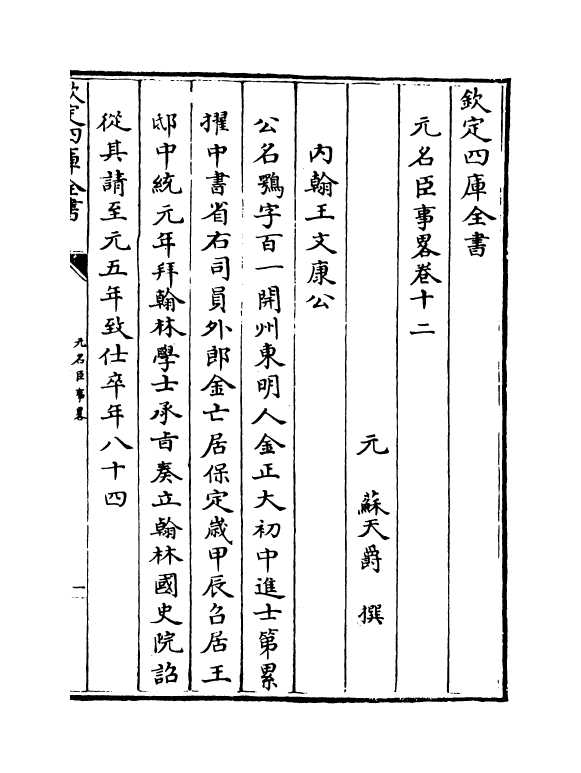 欽定四庫全書
元名臣事畧卷十二
元 蘇天爵 撰
內翰王文康公
公名鶚字百一開州東明人金正大初中進士第累
擢中書省右司員外郎金亡居保定歲甲辰召居王
邸中統元年拜翰林學士承旨奏立翰林國史院詔
從其請至元五年致仕卒年八十四
欽定四庫全書
元名臣事畧
一